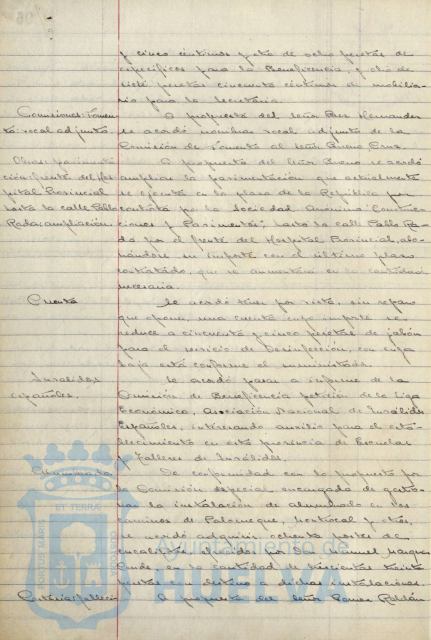 y cinco céntimos y otro de ocho pesetas de
específicos para la Beneficencia, y otro de
siete pesetas cincuenta céntimos de mobilia-
rio para la Secretaría.
Comisiones. Fomen- A propuesta del señor Pérez Hernández
to. vocal adjunto. se acordó nombrar vocal adjunto de la
Comisión de Fomento al señor Bueno Cruz.
Obras. pavimenta A propuesta del señor Bueno se acordó
ción frente del Hos- ampliar la pavimentación que actualmente
pital Provincial se ejecuta en la plaza de la República por
hasta la calle Pablo contrata por la Sociedad Anónima "Construc-
Rada; ampliación. ciones y Pavimentos", hasta la calle Pablo Ra-
da por el frente del Hospital Provincial, abo-
nándose su importe con el último plazo
contratado, que se aumentará en la cantidad
necesaria.
Cuenta Se acordó tener por vista, sin reparo
que oponer, una cuenta cuyo importe se
reduce a cincuenta y cinco pesetas de jabón
para el servicio de Desinfección, con cuya
baja está conforme el suministrador.
Inválidos Se acordó pasar a informe de la
españoles. Comisión de Beneficencia petición de la Liga
Económica, Asociación Nacional de Inválidos
Españoles, interesando auxilio para el esta-
blecimiento en esta provincia de Escuelas
y Talleres de Inválidos.
Alumbrado De conformidad con lo propuesto por
la Comisión especial encargada de gestio-
nar la instalación de alumbrado en los
caminos de Palomeque, y otros,
se acordó adquirir ochenta postes de
eucaliptos al Manuel Márquez
en la cantidad de trescientas treinta
pesetas con destino a dichas instalaciones.
A propuesta del señor Ponce Roldán
ET TERRÆ
PORTUS MARIS
Ayuntamiento de
HUELVA